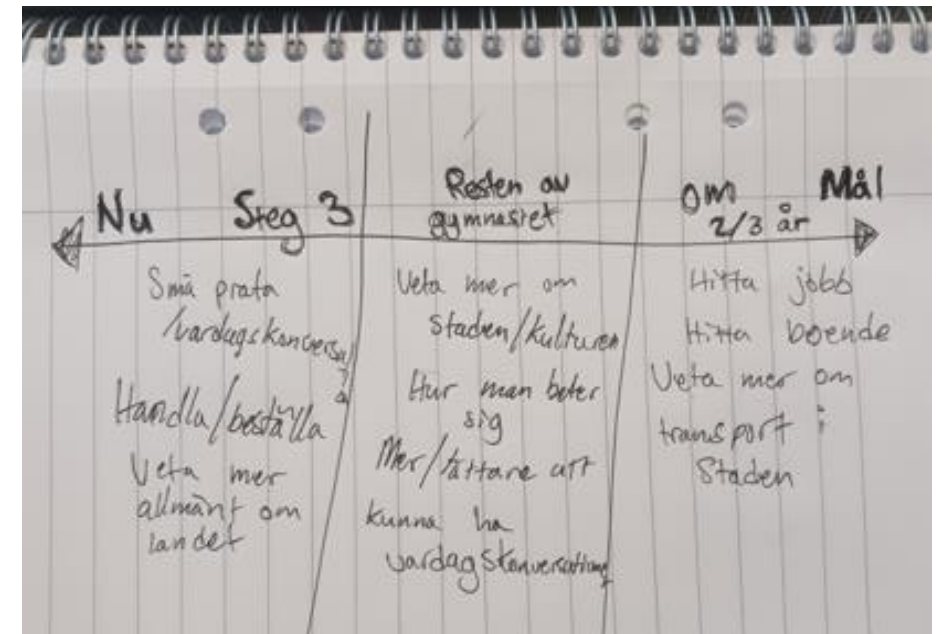 Nu Steg 3
Små prata
/vardagskonversa
Handla/beställa
Veta mer
allmänt om
landet
Resten av
gymnasiet
Veta mer om
staden/kulturen
Hur man beter
sig
Mer/lättare att
kunna ha
vardagskonversationer
om Mål
2/3 år
Hitta jobb
Hitta boende
Veta mer om
transport i
Staden